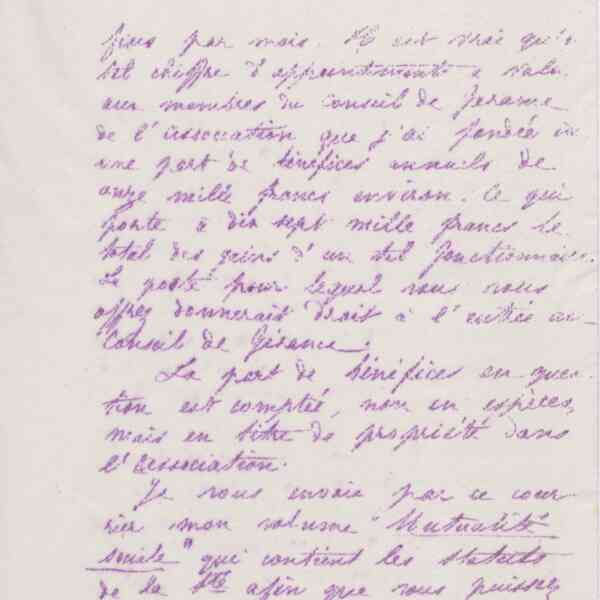 fixes par mois. Il est vrai qu'
tel chiffre d'appointements a valu
aux membres du Conseil de Gérance
de l'association que j'ai fondée
une part de bénéfices annuels de
onze mille francs environ. Ce qui
porte à dix sept mille francs le
total des gains d'un tel fonctionnaire.
Le poste pour lequel vous vous
offrez donnerait droit à l'entrée au
Conseil de Gérance.
La part de bénéfices en ques-
tion est comptée, non en espèces,
mais en titre de propriété dans
l'association.
Je vous envoie par ce cour-
rier mon volume "Mutualité
sociale" qui contient les statuts
de la Sté afin que vous puissiez